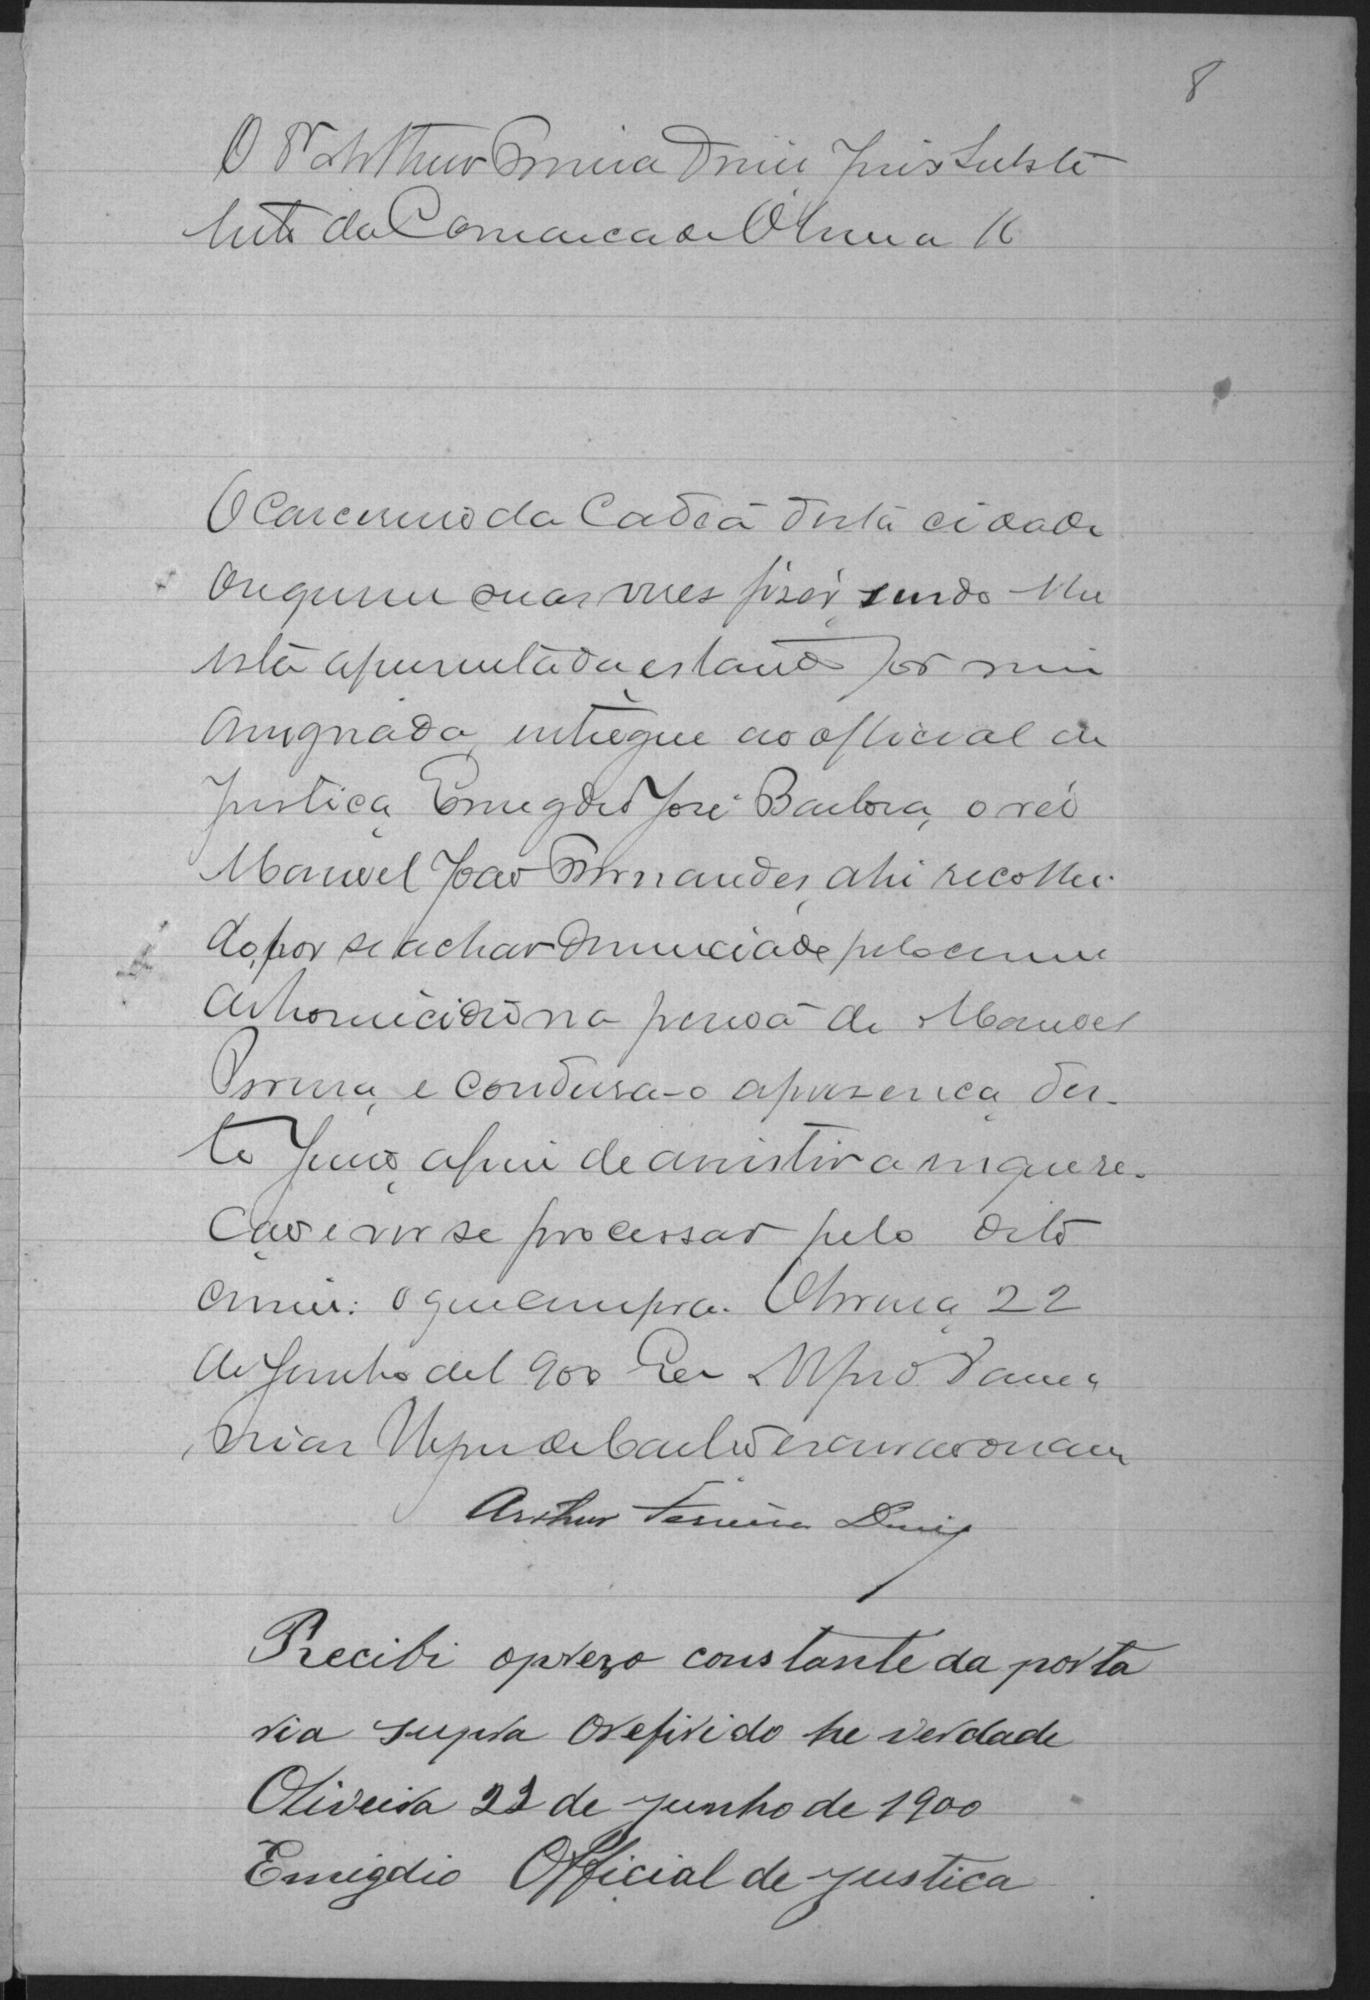 8
O Dr Arthur Ferreira Diniz Juis Substi
tuto da Comarca de Oliveira &
O Carcereiro da Cadea desta cidade
ou quem suas vezes fizer, sendo lhe
esta apresentada estando por mim
assignada, entregue ao official de
Justiça Emigdio José Barbosa, o réo
Manoel João Fernandes, ahi recolhi-
do, por se achar denunciado pelo crime
de homicidio na pessoa de Manoel
Pereira, e conduza-o a presença des-
te Juizo, afim de assistir a inquere-
ção e ver se processar pelo dito
crime: o que cumpra. Oliveira, 22
de Junho de 1900 Eu
escrivão
Arthur Ferreira Diniz
Recibi oprezo constante da porta
ria supra orefirido he verdade
Oliveira 22 de junho de 1900
Emigdio Official de justica